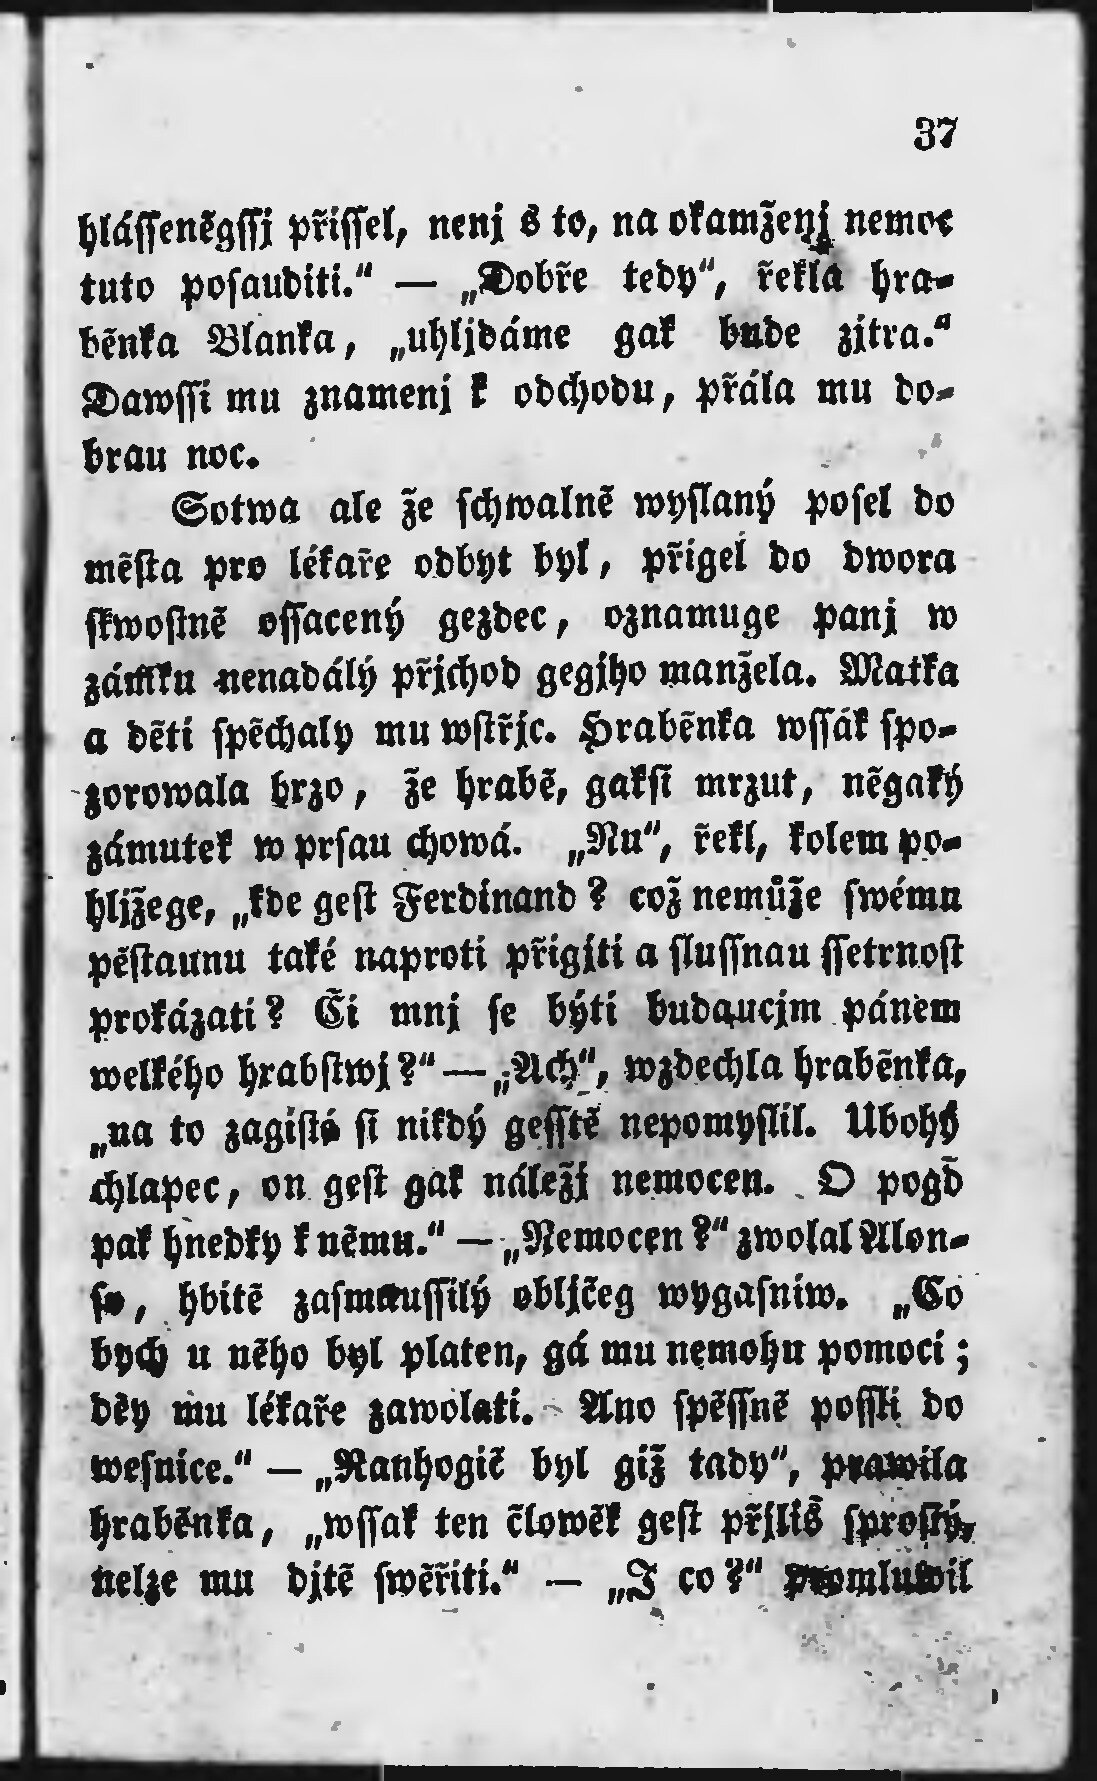 37
hlássenēgssj přissel, nenj s to, na okamženj nemoc
tuto posauditi.“ — „Dobře tedy“, řekla hra-
bēnka Blanka, „uhljdáme gak bude zjtra.“
Dawssi mu znamenj k odchodu, přála mu do-
brau noc.
Sotwa ale že schwalnē wyslaný posel do
mēsta pro lékaře odbyt byl, přigel do dwora
skwostnē ossacený gezdec, oznamuge panj w
zámku nenadálý přjchod gegjho manžela. Matka
a dēti spēchaly mu wstřjc. Hrabēnka wssák spo-
zorowala brzo, že hrabē, gaksi mrzut, nēgaký
zámutek w prsau chowá. „Nu“, řekl, kolem po-
hljžege, „kde gest Ferdinand? což nemůže swému
pēstaunu také naproti přigjti a slussnau ssetrnost
prokázati? Či mnj se býti budaucjm pánem
welkého hrabstwj?“ — „Ach“, wzdechla hrabēnka,
„na to zagisté si nikdý gesstē nepomyslil. Ubohý
chlapec, on gest gak náležj nemocen. O pogď
pak hnedky k nēmu.“ — „Nemocen?“ zwolal Alon-
so, hbitē zasmaussilý obljčeg wygasniw. „Co
bych u nēho byl platen, gá mu nemohu pomoci;
dēy mu lékaře zawolati. Ano spēssnē possli do
wesnice.“ — „Ranhogič byl giž tady“, prawila
hrabēnka, „wssak ten člowēk gest přjliš sprostý,
nelze mu djtē swēřiti.“ — „I co?“ promluwil